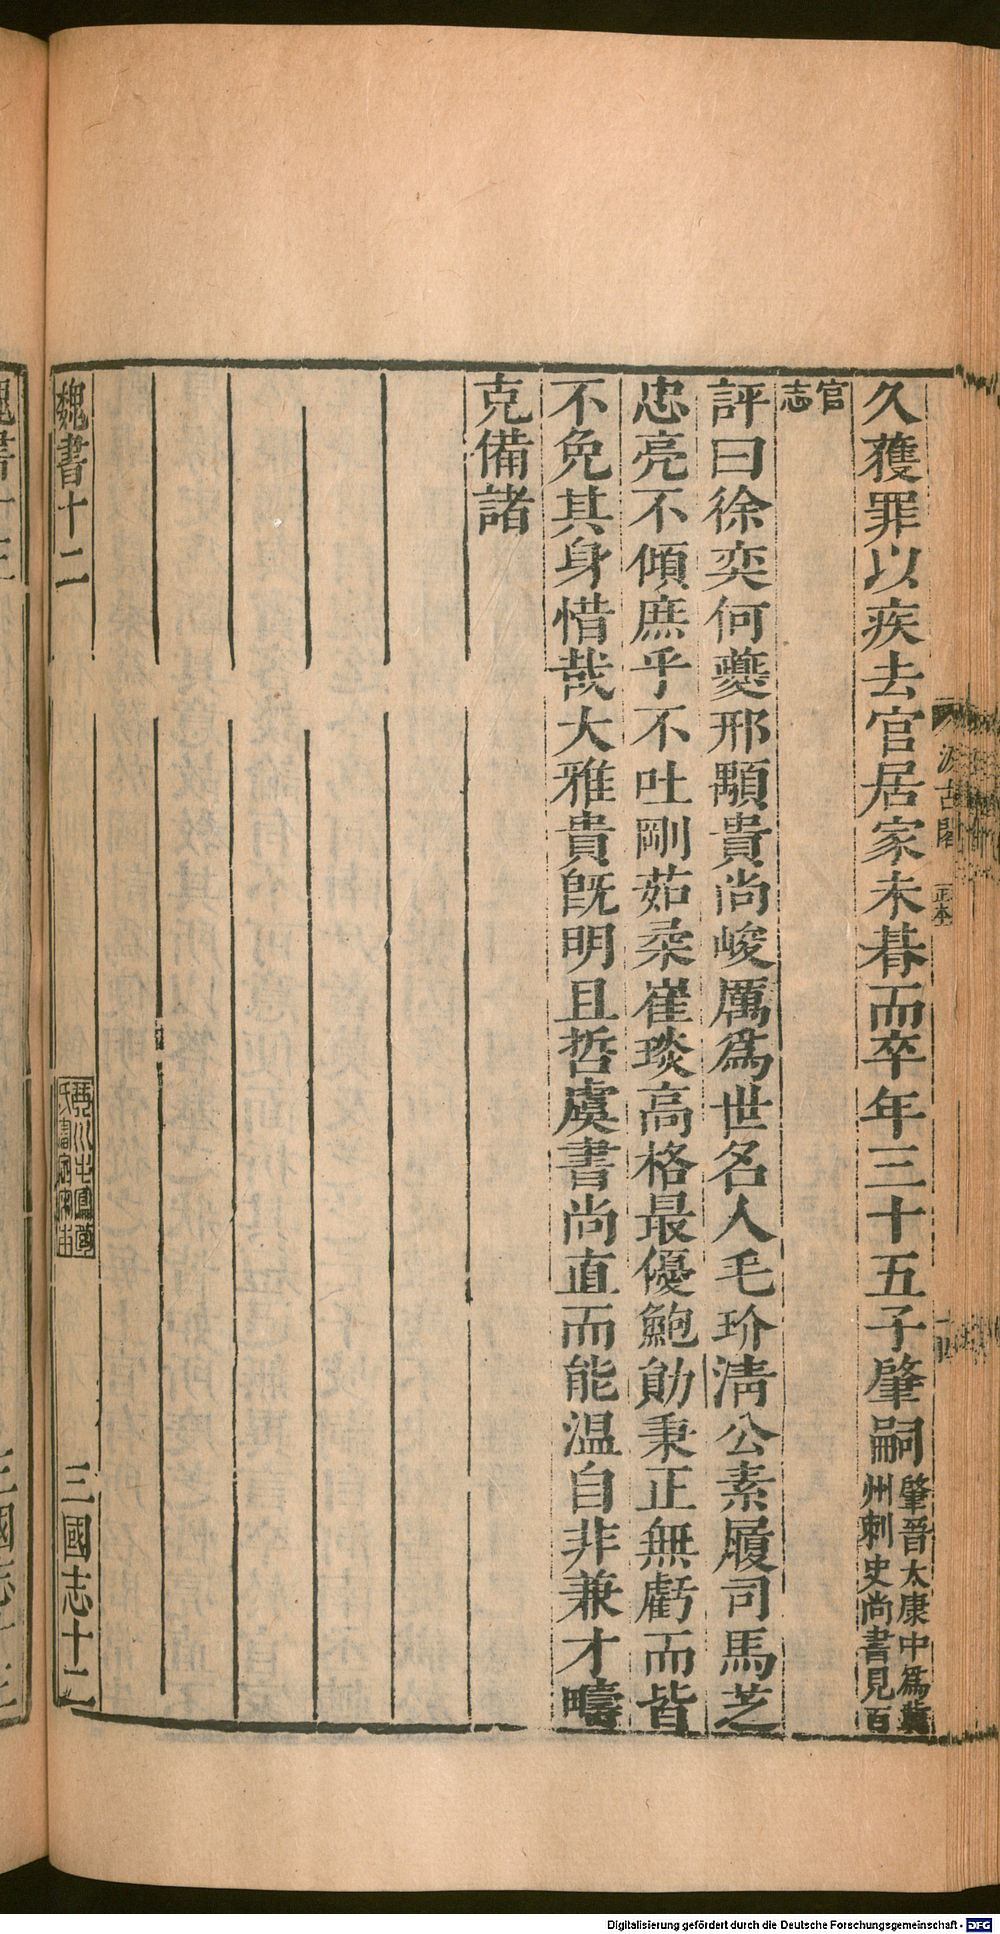 久獲罪以疾去官居家未朞而卒年三十五子肇嗣肇晉太康中為冀
州刺史尚書見百
官
志
評曰徐奕何夔邢顒貴尚峻厲爲世名人毛玠淸公素履司馬芝
忠亮不傾庶乎不吐剛茹柔崔琰高格最優鮑勛秉正無虧而皆
不免其身惜哉大雅貴旣明且哲虞書尚直而能温自非兼才疇
克備諸
魏書十二
三國志十二
汲古閣
正本
Digitalisierung gefördert durch die Deutsche Forschungsgemeinschaft - DFG